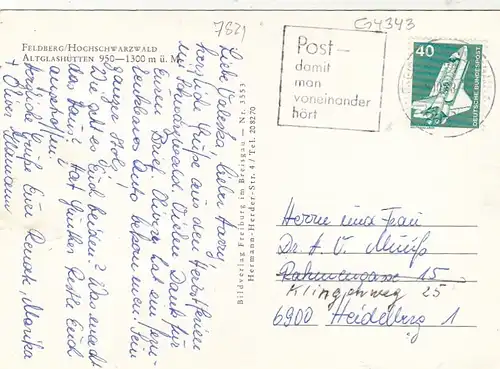 7621
G4343
FELDBERG/HOCHSCHWARZWALD
ALTGLASHÜTTEN 950—1300 m ü. M.
Liebe Valeska, lieber Harry,
herzliche Grüße aus den Herbstferien
im Schwarzwald. Vielen Dank für
Euren Brief. Oliver hat ein
Auto bekommen. Sein
ganzer Stolz.
Wie geht es Euch beiden? Was macht
das Haus? Hat Günther Euch
angerufen
herzliche Grüße Eure Renate, Monika
+ Oliver Hermann
Bildverlag Freiburg im Breisgau — Nr. 3553
Hermann-Herder-Str. 4 / Tel. 208270
Post—
damit
man
voneinander
hört
40
DEUTSCHE BUNDESPOST
Herrn und Frau
Dr. H. V.
Rahmengasse 15
Klingenweg 25
6900 Heidelberg 1